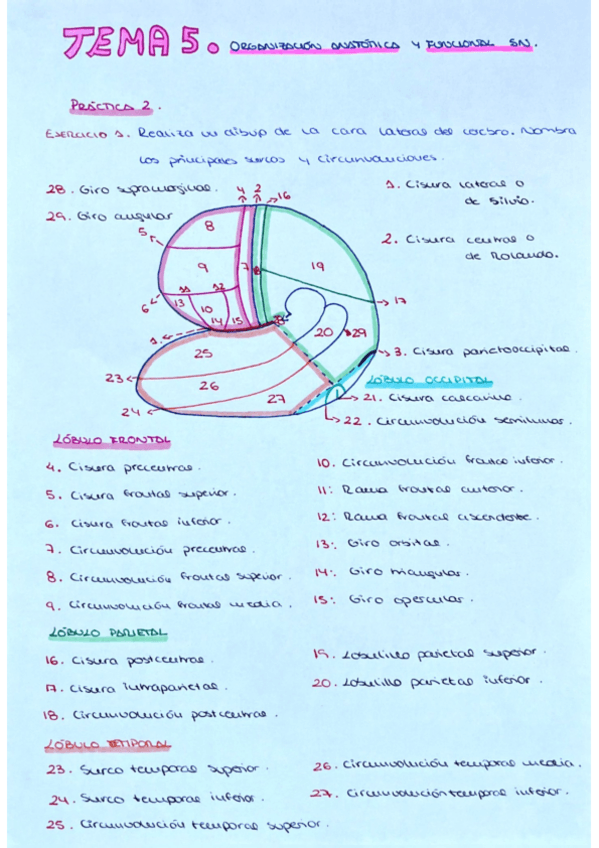 TEMA 5. ORGANIZACIÓN ANATÓMICA Y FUNCIONAL SN.
PRÁCTICA 2.
EJERCICIO 1. Realiza un dibujo de la cara lateral del cerebro. Nombra
los principales surcos y circunvoluciones.
28. Giro supramarginal.
29. Giro angular
1. Cisura lateral o
de Silvio.
2. Cisura central o
de Rolando.
4 2 16
5 8
9 7 18 19
6 13 11 12 10 14 15 17
1. 28 20 29
25
23 26
24 27
3. Cisura parietooccipital.
LÓBULO OCCIPITAL
21. Cisura calcarina.
22. Circunvolución semilunar.
LÓBULO FRONTAL
4. Cisura precentral.
5. Cisura frontal superior.
6. Cisura frontal inferior.
7. Circunvolución precentral.
8. Circunvolución frontal superior.
9. Circunvolución frontal media.
10. Circunvolución frontal inferior.
11: Rama frontal anterior.
12: Rama frontal ascendente.
13: Giro orbital.
14: Giro triangular.
15: Giro opercular.
LÓBULO PARIETAL
16. Cisura postcentral.
17. Cisura intraparietal.
18. Circunvolución postcentral.
19. Lobulillo parietal superior.
20. Lobulillo parietal inferior.
LÓBULO TEMPORAL
23. Surco temporal superior.
24. Surco temporal inferior.
25. Circunvolución temporal superior.
26. Circunvolución temporal media.
27. Circunvolución temporal inferior.